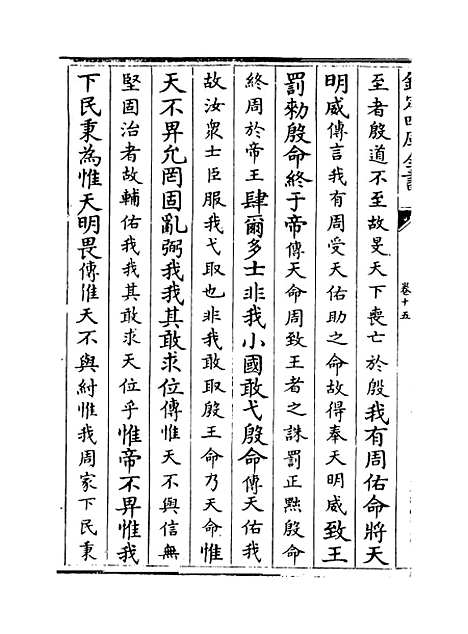 欽定四庫全書
卷十五
至者殷道不至故旻天下喪亡於殷我有周佑命將天
明威傳言我有周受天佑助之命故得奉天明威致王
罰勑殷命終于帝傳天命周致王者之誅罰正黜殷命
終周於帝王肆爾多士非我小國敢弋殷命傳天佑我
故汝衆士臣服我弋取也非我敢取殷王命乃天命惟
天不畀允罔固亂弼我我其敢求位傳惟天不與信無
堅固治者故輔佑我我其敢求天位乎惟帝不畀惟我
下民秉為惟天明畏傳惟天不與紂惟我周家下民秉